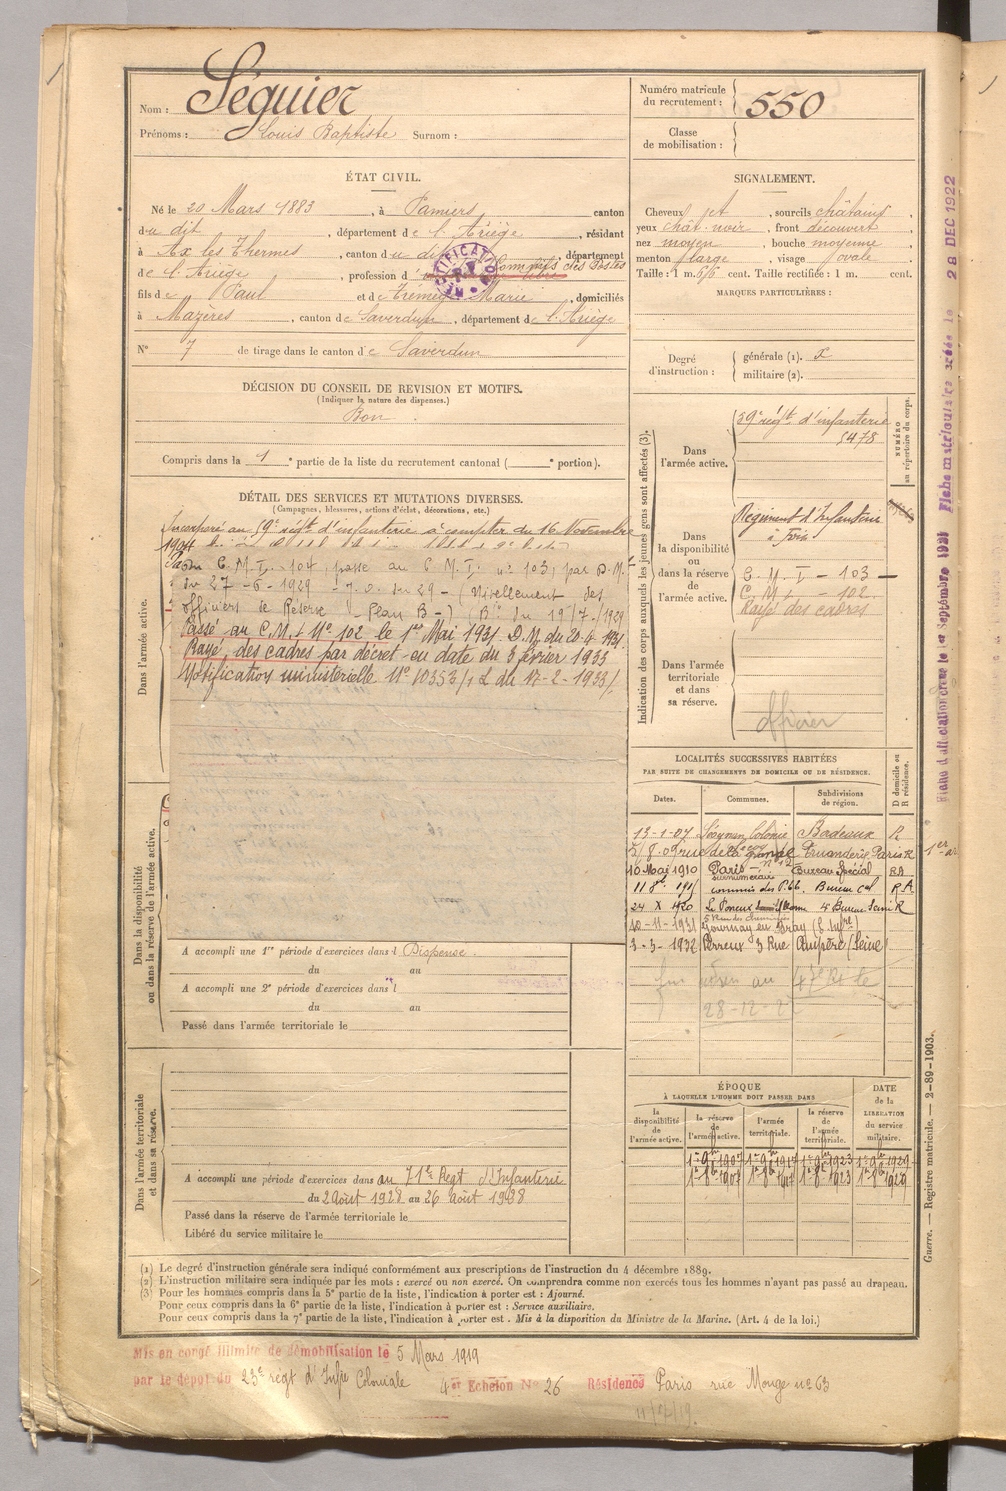 Nom : Séguier
Prénoms : Louis Baptiste Surnom :
Numéro matricule du recrutement : 550
Classe de mobilisation :
ÉTAT CIVIL.
Né le 20 Mars 1883, à Pamiers canton
du dit, département de l'Ariège, résidant
à Ax les Thermes, canton du dit, département
de l'Ariège, profession d' Commis des Postes
fils de Paul et de Marie, domiciliés
à Mazères, canton de Saverdun, département de l'Ariège
N° 7 de tirage dans le canton de Saverdun
RECTIFICATION
SIGNALEMENT.
Cheveux jet, sourcils châtains
yeux chât. noir, front découvert
nez moyen, bouche moyenne
menton large, visage ovale
Taille : 1 m. cent. Taille rectifiée : 1 m. cent.
MARQUES PARTICULIÈRES :
Degré d'instruction : générale (1). militaire (2).
DÉCISION DU CONSEIL DE REVISION ET MOTIFS.
(Indiquer la nature des dispenses.)
Bon
Compris dans la 1e partie de la liste du recrutement cantonal ( e portion).
DÉTAIL DES SERVICES ET MUTATIONS DIVERSES.
(Campagnes, blessures, actions d'éclat, décorations, etc.)
Dans l'armée active.
Incorporé au régt d'infanterie à compter du 16 Novembre
1904
C. M. I. 104, passé au C. M. I. n° 103, par D. M.
du 27 - 6 - 1929 - J.O. - 29 - (Nivellement des
officiers de Réserve - Plan B -) (Bie du 19/7/1929
Passé au C.M.I. N° 102 le 1er Mai 1931. D.M. du 20.4.1931.
Rayé des cadres par décret en date du 3 février 1933
Notification ministérielle N° 10353/ du 17-2-1933/.
Indication des corps auxquels les jeunes gens sont affectés (3).
Dans l'armée active.
régt d'infanterie
5478
NUMÉRO au répertoire du corps.
Dans la disponibilité ou dans la réserve de l'armée active.
Régiment d'Infanterie
à Foix
C. M. I - 103 -
C. M. I - 102.
Rayé des cadres
Dans l'armée territoriale et dans sa réserve.
officier
LOCALITÉS SUCCESSIVES HABITÉES
PAR SUITE DE CHANGEMENTS DE DOMICILE OU DE RÉSIDENCE.
Dates. Communes. Subdivisions de région. D domicile ou R résidence.
13-1-07 Colonie Bordeaux R
rue de la grande Truanderie Paris R
10 Mai 1910 Paris - n° 12 Bureau Spécial RA
surnuméraire
commis des P.tt. Bureau Cal R A
24 X 1920 Le Perreux 4e Bureau Seine R
10-11-1931 Gournay en Bray
3-3-1932 Perreux 3 Rue Ampère (Seine)
28-12-2
Dans la disponibilité ou dans la réserve de l'armée active.
A accompli une 1re période d'exercices dans l Dispense.
du au
A accompli une 2e période d'exercices dans l
du au
Passé dans l'armée territoriale le
Dans l'armée territoriale et dans sa réserve.
A accompli une période d'exercices dans au 71e Regt d'Infanterie
du 2 août 1928 au 26 août 1928
Passé dans la réserve de l'armée territoriale le
Libéré du service militaire le
ÉPOQUE
À LAQUELLE L'HOMME DOIT PASSER DANS
la disponibilité de l'armée active. la réserve de l'armée active. l'armée territoriale. la réserve de l'armée territoriale.
DATE de la LIBÉRATION du service militaire.
1er 9bre 1907 1er 9bre 1917 1er 9bre 1923 1er 9bre 1929
1er 8bre 1907 1er 8bre 1917 1er 8bre 1923 1er 8bre 1929
(1) Le degré d'instruction générale sera indiqué conformément aux prescriptions de l'instruction du 4 décembre 1889.
(2) L'instruction militaire sera indiquée par les mots : exercé ou non exercé. On comprendra comme non exercés tous les hommes n'ayant pas passé au drapeau.
(3) Pour les hommes compris dans la 5e partie de la liste, l'indication à porter est : Ajourné.
Pour ceux compris dans la 6e partie de la liste, l'indication à porter est : Service auxiliaire.
Pour ceux compris dans la 7e partie de la liste, l'indication à porter est : Mis à la disposition du Ministre de la Marine. (Art. 4 de la loi.)
Guerre. — Registre matricule. — 2-89-1903.
Mis en congé illimité de démobilisation le 5 Mars 1919
par le dépôt du 23e régt d'Infie Coloniale 4er Echelon N° 26 Résidence Paris rue Monge n° 63
Fiche d'affectation créée le 1er Septembre 1921 Fiche matriculaire créée le 28 DEC 1922